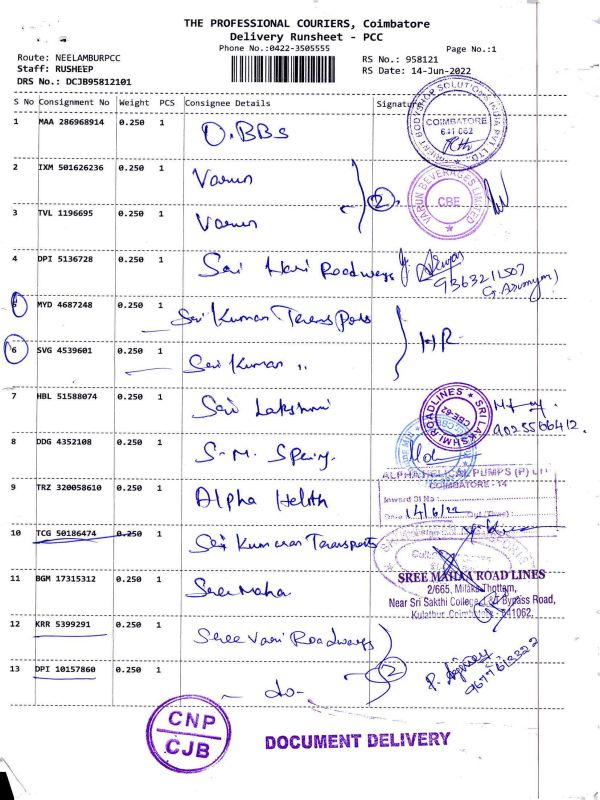 THE PROFESSIONAL COURIERS, Coimbatore
Delivery Runsheet - PCC
Phone No.:0422-3505555
Page No.:1
Route: NEELAMBURPCC
RS No.: 958121
Staff: RUSHEEP
RS Date: 14-Jun-2022
DRS No.: DCJB95812101
S No Consignment No Weight PCS Consignee Details Signature
1 MAA 286968914 0.250 1 O.BBS
COIMBATORE
641 062
2 IXM 501626236 0.250 1 Varun
2
VARUN BEVERAGES LIMITED
CBE
3 TVL 1196695 0.250 1 Varun
4 DPI 5136728 0.250 1 Sri Hari Roadways
9363211507
5 MYD 4687248 0.250 1 Sri Kumaran Transports
HR
6 SVG 4539601 0.250 1 Sri Kumaran ,,
7 HBL 51588074 0.250 1 Sri Lakshmi
SRI LAKSHMI ROADLINES
CBE-62
9025566412
8 DDG 4352108 0.250 1 S.M. Spery.
ALPHA HELICAL PUMPS (P) LTD
COIMBATORE - 14
Inward Sl No :
9 TRZ 320058610 0.250 1 Alpha Helith
Date 14/6/22
10 TCG 50186474 0.250 1 Sri Kumaran Transports
SREE MAHAA ROAD LINES
11 BGM 17315312 0.250 1 Sree Maha
2/665, Milaka Thottam,
Near Sri Sakthi College, L&T Bypass Road,
Kulathur, Coimbatore - 641062.
12 KRR 5399291 0.250 1 Sree Vari Roadways
2
13 DPI 10157860 0.250 1 - do-
CNP
CJB
DOCUMENT DELIVERY